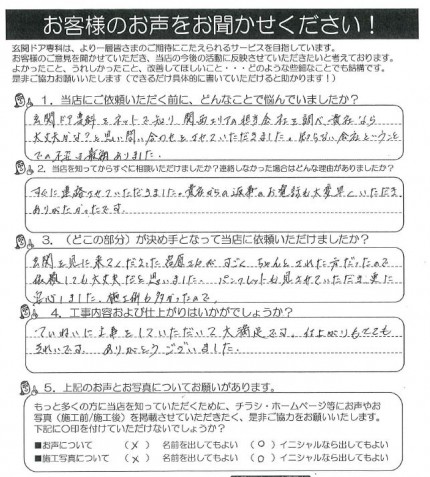 お客様のお声をお聞かせください！
玄関ドア専科は、より一層皆さまのご期待にこたえられるサービスを目指しています。
お客様のご意見を聞かせていただき、当店の今後の活動に反映させていただきたいと考えております。
よかったこと、うれしかったこと、改善してほしいこと・・・どのような些細なことでも結構です。
是非ご協力お願いいたします（できるだけ具体的に書いていただけると助かります！）
1．当店にご依頼いただく前に、どんなことで悩んでいましたか？
玄関ドア専科をネットで知り、関西エリアの担当会社を調べ貴社なら
大丈夫かな？と思い問い合わせをさせていただきました。知らない会社というコトで
の不安も有りました。
2．当店を知ってからすぐに相談いただけましたか？連絡しなかった場合はどんな理由がありましたか？
すぐに連絡させていただきました。貴社からの返事のお電話も大変早くいただき、
ありがたかったです。
3．（どこの部分）が決め手となって当店に依頼いただけましたか？
玄関を見に来てくださったさんがすごくちゃんとされた方だったので
依頼しても大丈夫だと思いました。パンフレットも見させていただき更に
安心しました。施工例も多かったので。
4．工事内容および仕上がりはいかがでしょうか？
ていねいに工事をしていただいて大満足です。仕上がりもとても
きれいです。ありがとうございました。
5．上記のお声とお写真についてお願いがあります。
もっと多くの方に当店を知っていただくために、チラシ・ホームページ等にお声やお
写真（施工前/施工後）を掲載させていただきたく、是非ご協力をお願いいたします。
下記に〇印を付けていただけないでしょうか？
■お声について （×） 名前を出してもよい （○） イニシャルなら出してもよい
■施工写真について （×） 名前を出してもよい （○） イニシャルなら出してもよい